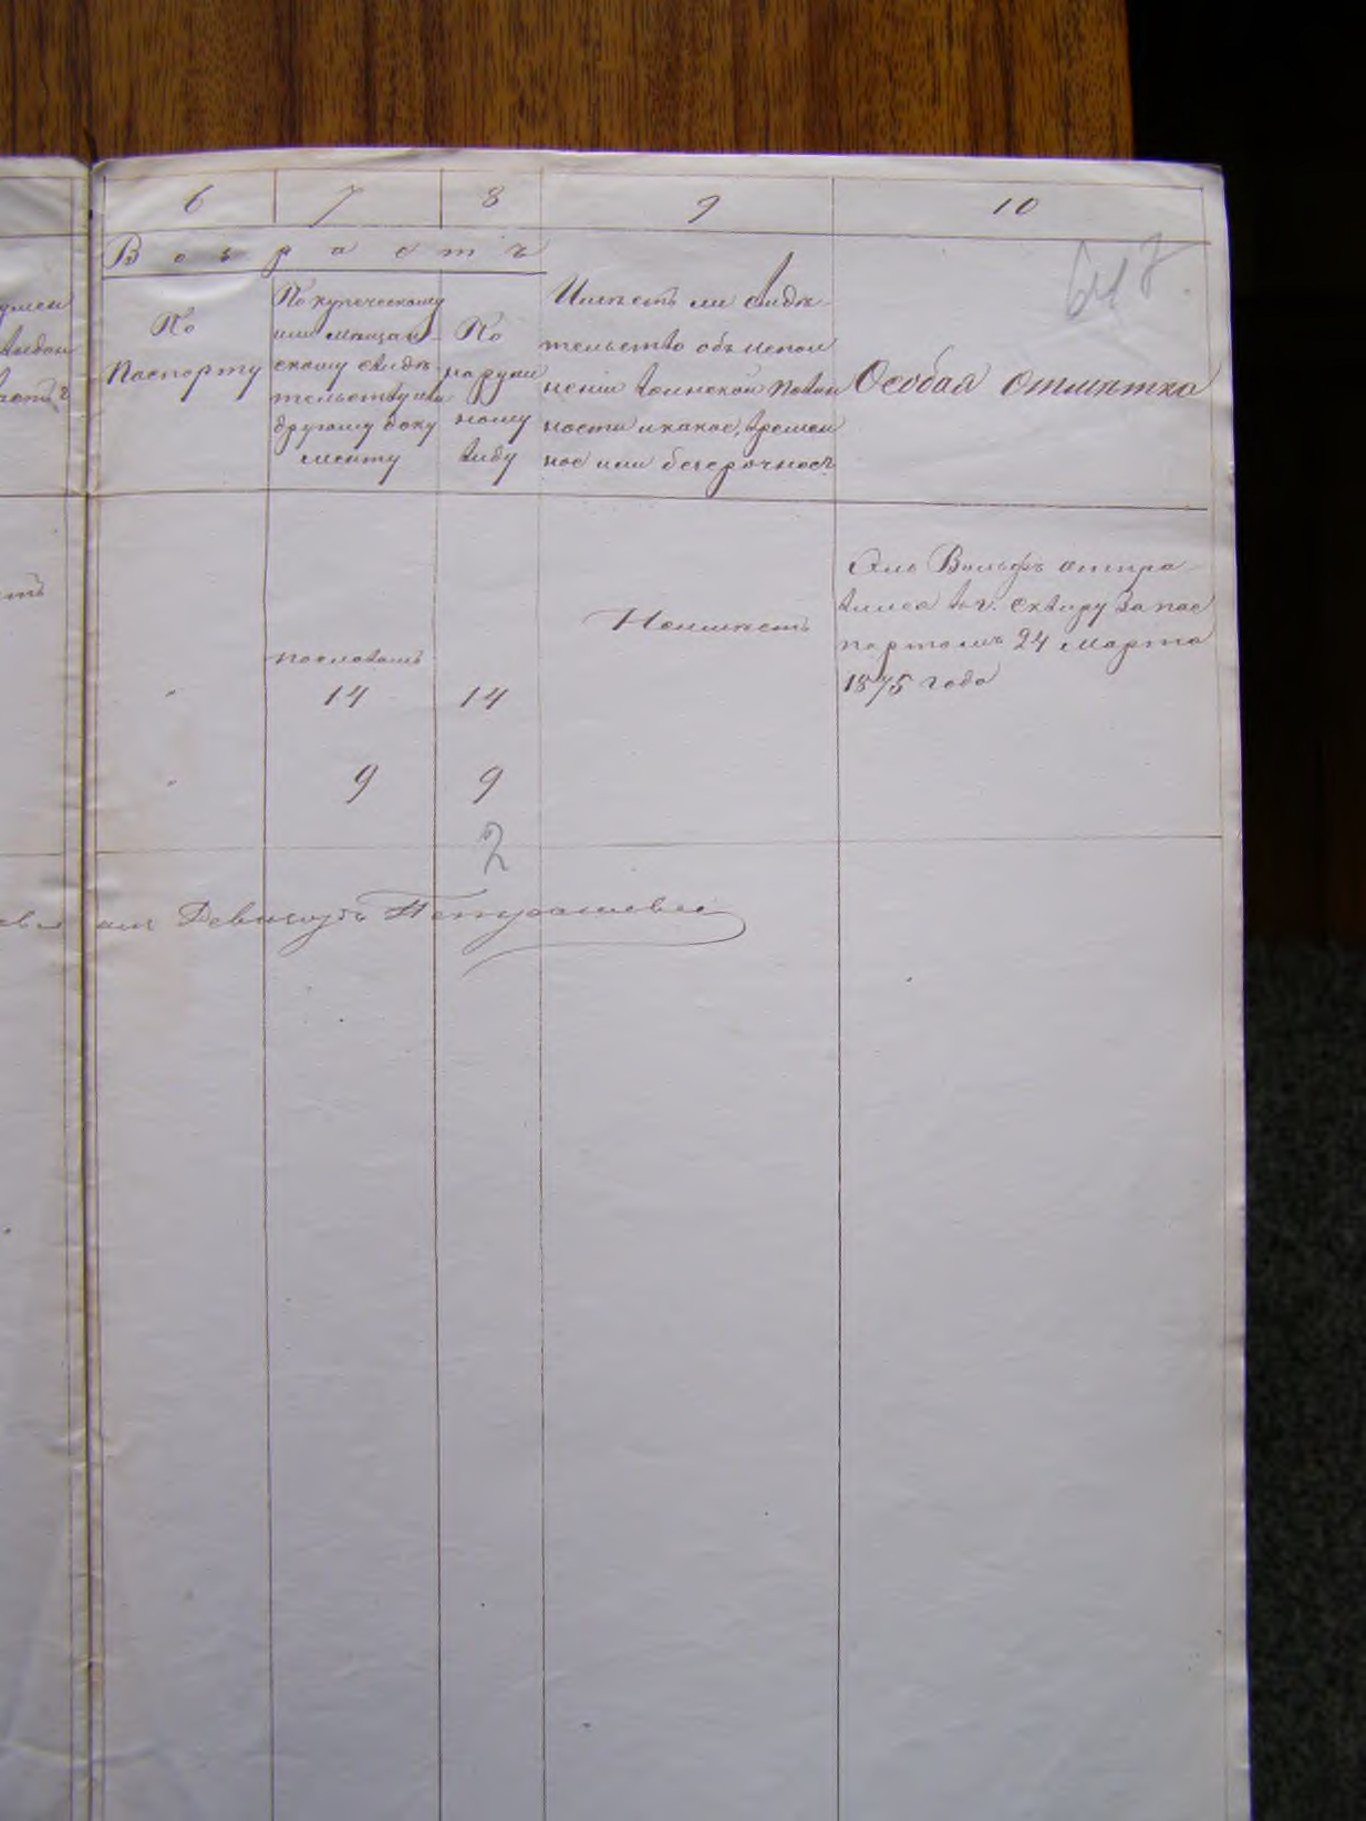 6 7 8 9 10
Возрастъ
По
Паспорту
По купеческому
или мѣщан-
скому свидѣ-
тельству или
другому доку
менту
По
наруж
ному
виду
Имѣетъ ли свидѣ-
тельство объ испол
неніи воинской повин
ности и какое, времен
ное или безсрочное?
Особая отмѣтка
Неимѣетъ
Вольфъ отпра-
вился въ г. Сквиру за пас
портомъ 24 марта
1875 года
пословамъ
14 14
9 9
2